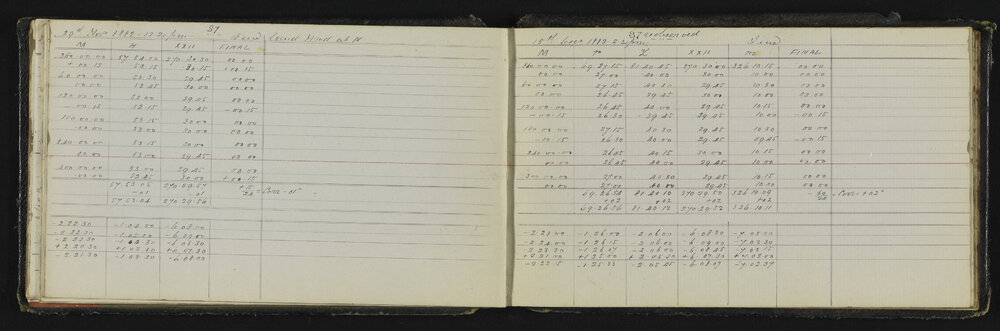 37
29th Nov 1882 - 12.2 pm Fine Wind
M H XXII FINAL
360.00.00 57.54.00 270.30.30 00.00
+ 00.15 53.15 30.15 +00.15
60.00.00 53.30 29.45 00.00
00.00 52.45 30.00 00.00
120.00.00 53.00 29.45 00.00
- 00.15 52.15 29.45 - 00.15
180.00.00 53.15 30.00 00.00
00.00 53.00 30.00 00.00
240.00.00 53.15 30.00 00.00
00.00 53.00 29.45 00.00
300.00.00 53.00 29.45 00.00
00.00 52.45 30.00 +00.15
57.53.05 270.29.57 +15
-01 01 24 = Corr -01"
57.53.04 270.29.56
-2.22.30 -1.04.00 -6.08.00
-2.22.30 -1.05.00 -6.09.00
-2.22.30 -1.04.30 -6.08.30
+2.20.30 +1.02.30 +6.07.30
-2.21.30 -1.03.30 -6.08.00
37
15th 1882 - 2.2 pm Fine
M XXII FINAL
360.00.00 69.27.15 81.40.45 270.30.00 326.10.15 00.00
00.00 27.00 40.00 30.00 10.00 00.00
60.00.00 27.15 40.30 29.45 10.30 00.00
00.00 26.45 39.45 30.00 10.00 00.00
120.00.00 26.45 40.00 29.45 10.15 00.00
- 00.15 26.30 39.45 29.45 10.00 - 00.15
180.00.00 27.15 40.30 30.00 10.30 00.00
- 00.15 26.30 40.00 29.45 10.00 - 00.15
240.00.00 26.45 40.15 30.00 10.15 00.00
00.00 26.45 40.00 29.45 10.00 00.00
300.00.00 27.00 40.30 29.45 10.15 00.00
00.00 27.00 40.00 29.45 10.00 00.00
69.26.54 81.40.10 270.29.50 326.10.09
+02 +02 +02 +02 24 = Corr +02"
69.26.56 81.40.12 270.29.52 326.10.11
-2.23.00 -1.26.00 -2.06.00 -6.08.30 -4.03.00
-2.24.00 -1.26.15 -2.06.00 -6.09.00 -4.03.30
-2.23.30 -1.26.07 -2.06.00 -6.08.45 -4.03.15
+2.21.00 +1.25.00 +2.05.30 +6.07.30 +4.02.00
-2.22.15 -1.25.33 -2.05.45 -6.08.07 -4.02.37